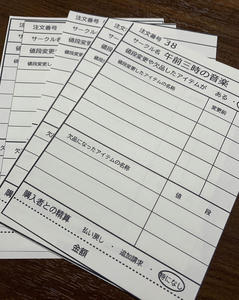 注文番号 38
サークル名 午前三時の音楽
値段変更や欠品したアイテムが ある ・
値段変更したアイテムの名称
変更前
欠品になったアイテムの名称
値 段
購入者との精算
払い戻し ・ 追加請求 ・ 特になし
金額
注文番号
サークル名
値段変更
値段変更し
注文番号
サークル
値段変更
注文番号
サークル名
値段変更
注文番号